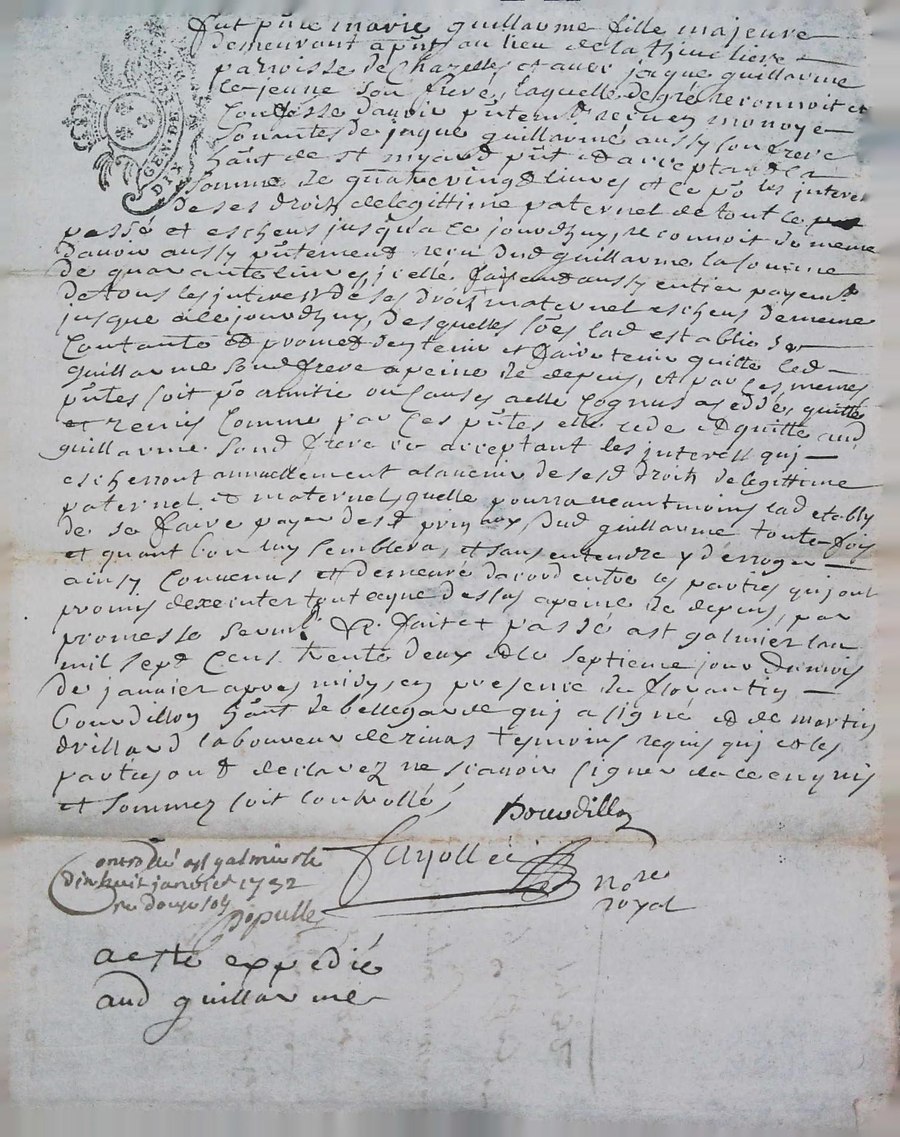 fut pñte marie guillarme fille majeure
demeurant apñt au lieu de la thiueliere
parroisse de Chazelles et avec jaque guillarme
le jeune son frere, laquelle de gré reconnoit et
Confesse davoir pñtemt reçu en monoye
sonantes de jaque guillarmé aussy son frere
hãnt de st myard pñt et acceptant la
somme de quatre vingt livres et ce po les interes
de ses droits de legittime paternel de tout le
passé et escheus jusqua ce jourdhuy, reconnoit de meme
davoir aussy pñtement reçu dud guillarme la somme
de quarante livres icelle faisant aussy entier payemt
de tous les interest de ses droits maternel escheus de meme
jusque a ce jourdhuy, desquelles sões lad establie se
Contante et promet den tenir et faire tenir quitte led
guillarme sond frere a peine de depens, et par ces memes
pñtes soit po amitié ou causes a elle cognus a cedé, quitté
et remis comme par ces pñtes elle cede et quitte aud
guillarme sond frere ce acceptant les interest qui
escherront annuellement a lavenir de sesd droits de legittime
paternel et maternel, quelle pourra neantmoins lad etablie
de se faire payer desd prinaux dud guillarme toute fois
et quant bon luy semblera, et sans entendre y deroger
ainsy convenus et demeuré dacord entre les parties qui ont
promis dexecuter tout ce que dessus a peine de depens, par
promesse sermt & fait et passé a st galmier lan
mil sept cens trente deux et le septieme jour du mois
de janvier apres midy, en presence de florantin
bourdillon hãnt de bellegarde qui a signé et de martin
drillard laboureur de rivas tesmoins requis qui et les
parties ont declarez ne scavoir signer de ce enquis
et sommez soit controllé,
Bourdillon
fayolle
nore
royal
Controllé a st galmier le
dix huit janvier 1732
re douze sols
populle
acte expedié
aud guillarme
GEN. DE
DIX